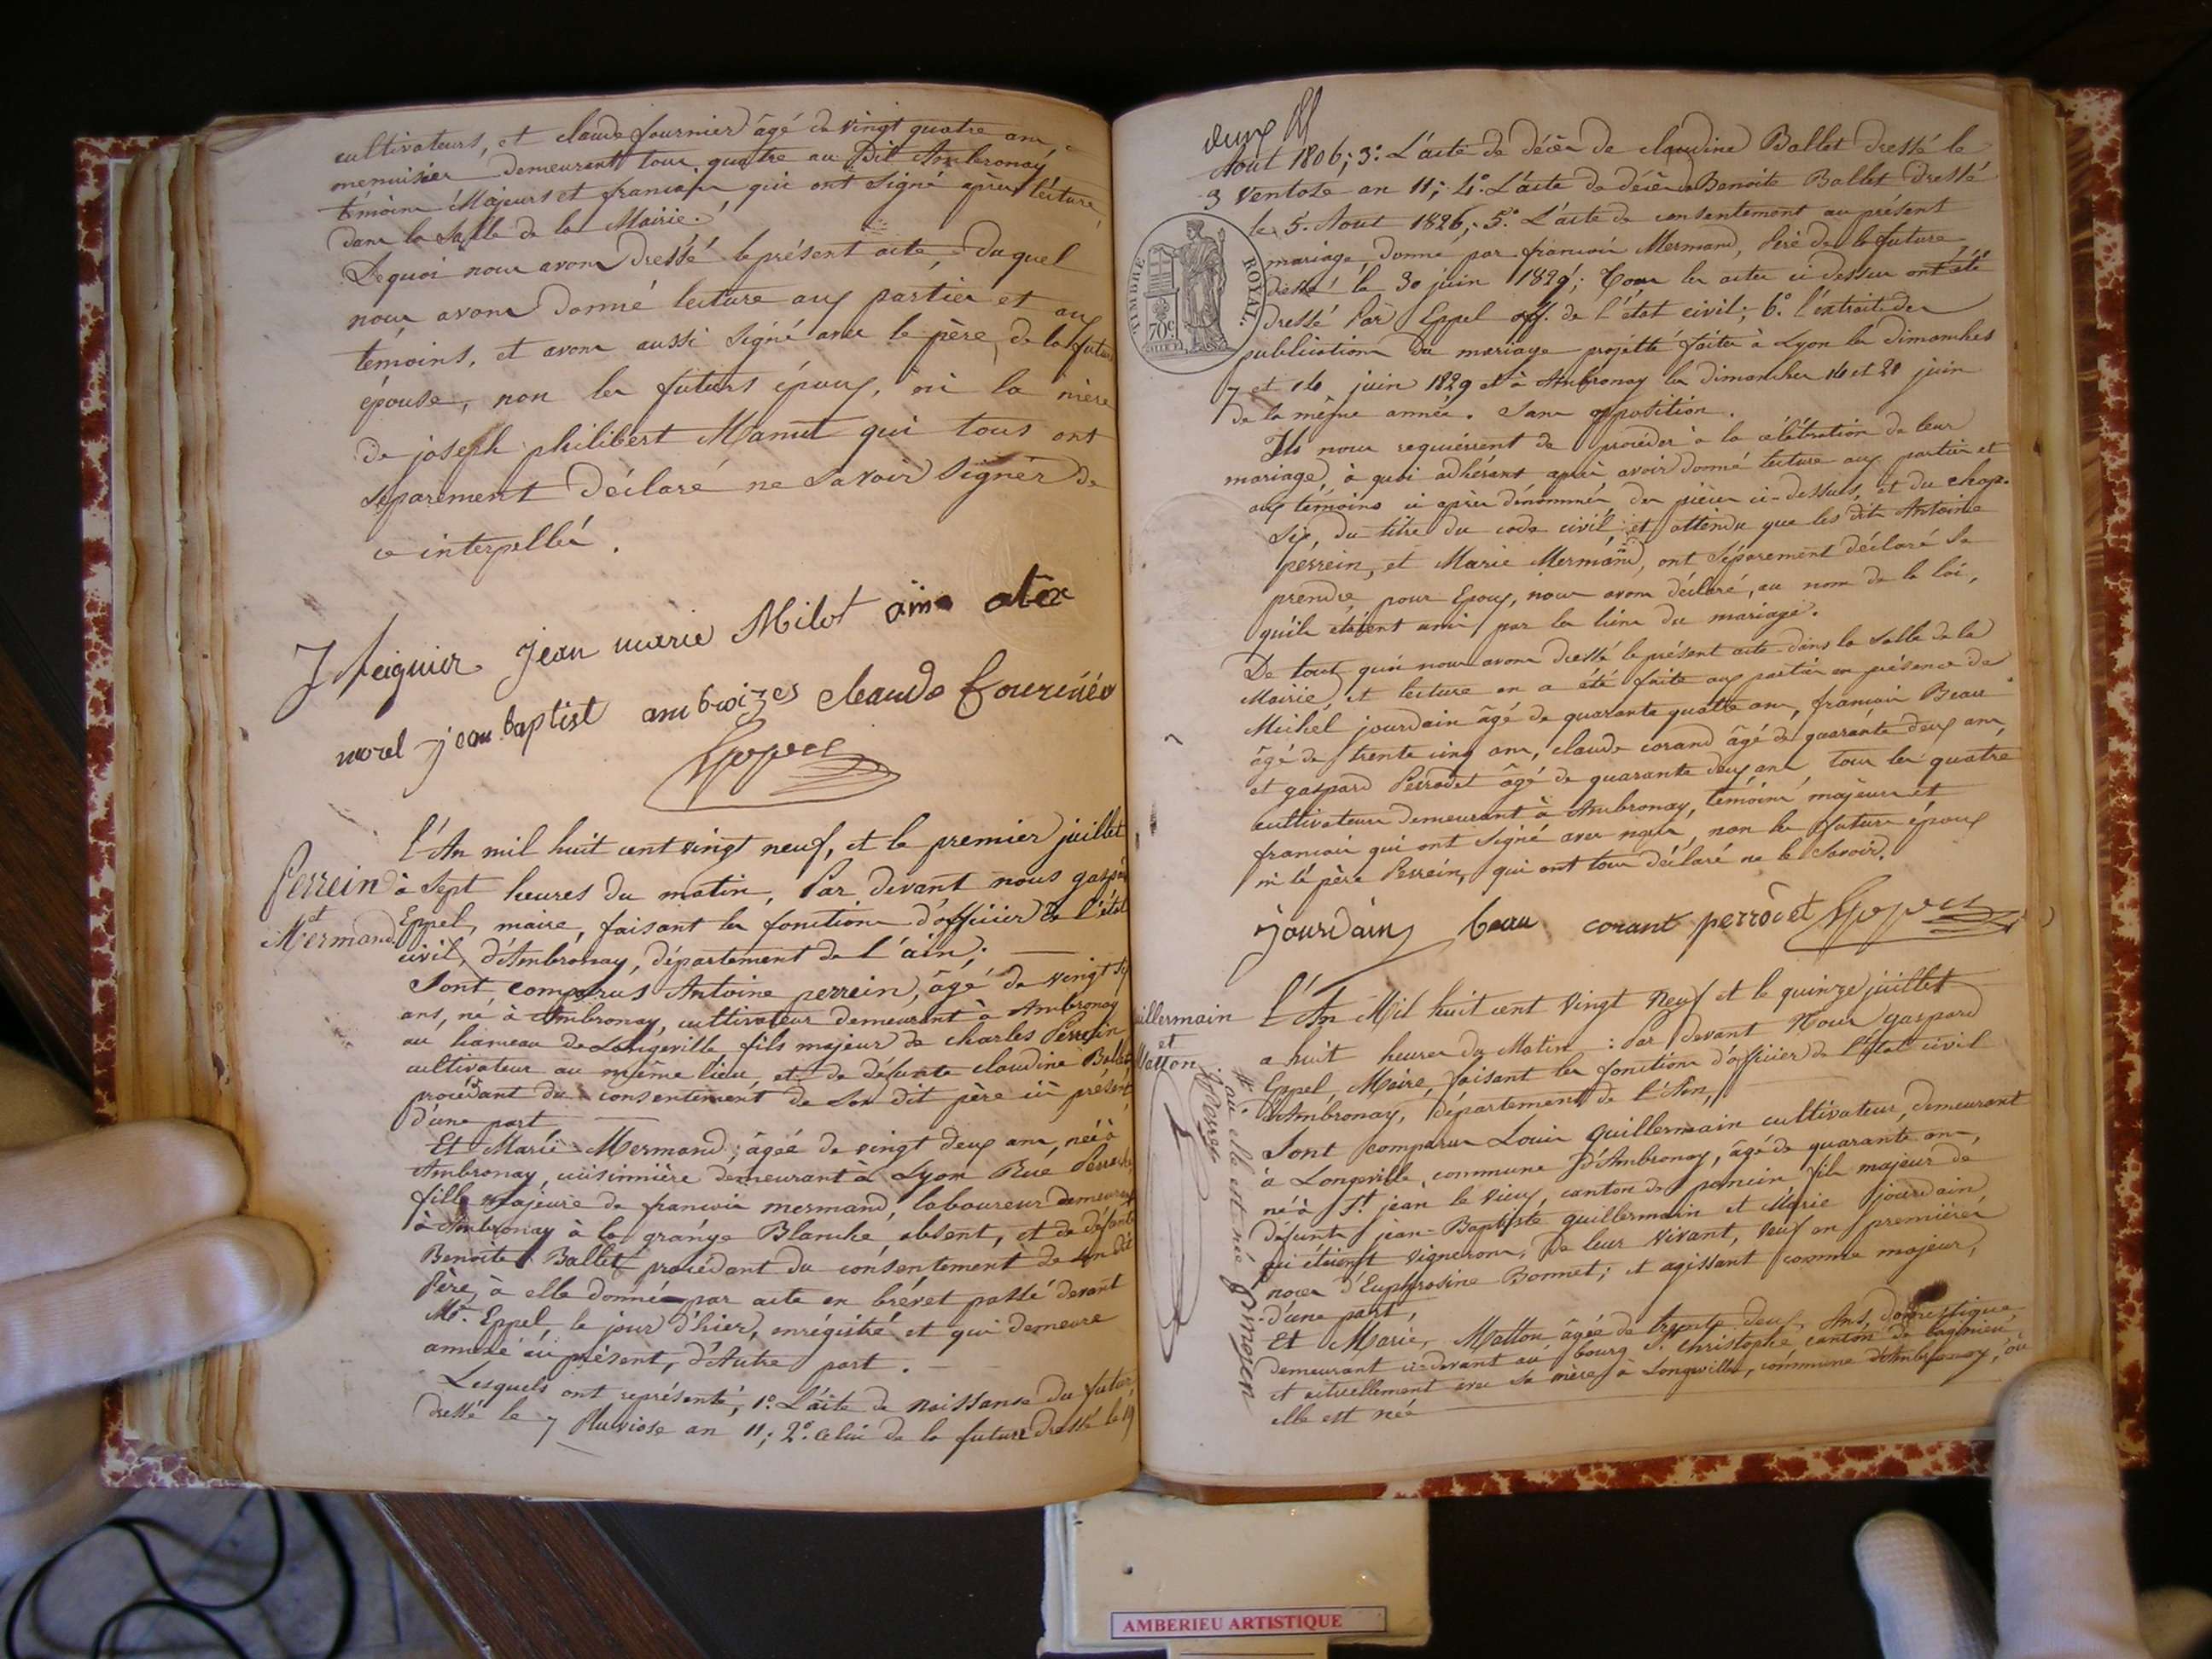 cultivateurs, et claude fournier âgé de vingt quatre ans,
menuisier demeurant tous quatre au dit Ambronay
témoins Majeurs et français qui ont signé après lecture,
dans la Salle de la Mairie.
De quoi nous avons dressé le présent acte, duquel
nous avons donné lecture aux parties et aux
témoins, et avons aussi signé avec le père de la future
épouse, non les futurs époux, ni la mère
de joseph philibert Manut qui tous ont
séparement déclaré ne savoir signer de
ce interpellés.
J Jean marie Milot
morel jean baptist ambroizes claude fournier
Eppel
Perrein
et
Mermand
l'An mil huit cent vingt neuf, et le premier juillet
à Sept heures du matin, Par devant nous gaspard
Eppel, maire, faisant les fonctions d'officier de l'état
civil, d'Ambronay, département de l'ain;
Sont comparus Antoine perrein, âgé de vingt six
ans, né à Ambronay, cultivateur demeurant à Ambronay
au hameau de Longeville fils majeur de charles Perrein
cultivateur au même lieu et de défunte claudine Ballet
procédant du consentement de Son dit père ici présent
d'une part
Et Marie Mermand, âgée de vingt deux ans, née à
Ambronay, cuisinière demeurant à Lyon Rue
fille majeure de francois mermand, laboureur demeurant
à Ambronay à la grange Blanche, absent, et de défunte
Benoite Ballet procédant du consentement de son dit
Père, à elle donné par acte en brévet passé devant
Mr. Eppel le jour d'hier, enrégistré et qui demeure
annexé au présent, d'Autre part.
Lesquels ont représenté, 1º L'acte de naissance du futur
dressé le 7 Pluviose an 11; 2º celui de la future dressé le 19
deux
Aout 1806; 3º L'acte de décès de claudine Ballet dressé le
3 Ventose an 11; 4º L'acte de décès de Benoite Ballet dressé
le 5 Aout 1826; 5º L'acte de consentement au présent
mariage donné par francois Mermand, Père de la future
dressé le 30 juin 1829; Tous les actes ci dessus ont été
dressé Par Eppel off. de l'état civil; 6º l'extrait des
publications du mariage projetté faites à Lyon les dimanches
7 et 14 juin 1829 et à Ambronay les dimanches 14 et 21 juin
de la même année. Sans opposition.
TIMBRE ROYAL.
70c
Ils nous requièrent de procéder à la célébration de leur
mariage, à quoi adhérant après avoir donné lecture aux parties et
aux témoins ci après dénommés, des pièces ci-dessus, et du chap.
Six, du titre du code civil, et attendu que les dits Antoine
perrein, et Marie Mermand, ont séparement déclaré se
prendre pour Epoux, nous avons déclaré, au nom de la loi,
qu'ils étaient unis par les liens du mariage.
De tout quoi nous avons dressé le présent acte dans la Salle de la
Mairie, et lecture en a été faite aux parties en présence de
Michel jourdain âgé de quarante quatre ans, francois Beau
âgé de trente cinq ans, claude corand âgé de quarante deux ans,
et gaspard Perrodet âgé de quarante deux ans tous les quatre
cultivateurs demeurant à Ambronay, témoins majeurs et
francais qui ont signé avec nous, non les futurs époux
ni le père Perrein, qui ont tous déclaré ne le Savoir.
jourdain beau corant perrodet Eppel
uillermain
et
Matton
l'An Mil huit cent vingt Neuf et le quinze juillet
a huit heures du Matin : Par devant Nous gaspard
Eppel, Maire, faisant les fonctions d'officier de l'état civil
d'Ambronay, département de l'Ain,
Sont comparus Louis guillermain cultivateur demeurant
à Longeville, commune d'Ambronay, âgé de quarante ans,
né à St. jean le vieux, canton de poncin fils majeur de
défunts jean-Baptiste guillermain et Marie jourdain,
qui étaient vignerons, de leur vivant, veuf en premières
noces d'Euphrosine Bonnet; et agissant comme majeur,
d'une part,
Et Marie, Matton âgée de trente deux Ans, domestique
demeurant ci-devant au bourg St. Christophe canton de
et actuellement avec sa mère à Longeville, commune d'Ambronay, où
elle est née
où elle est née